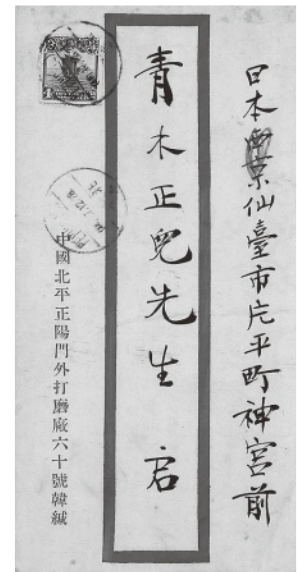 日本西京仙臺市片平町神宮前
青木正兒先生 启
中國北平正陽門外打磨廠六十號韓緘